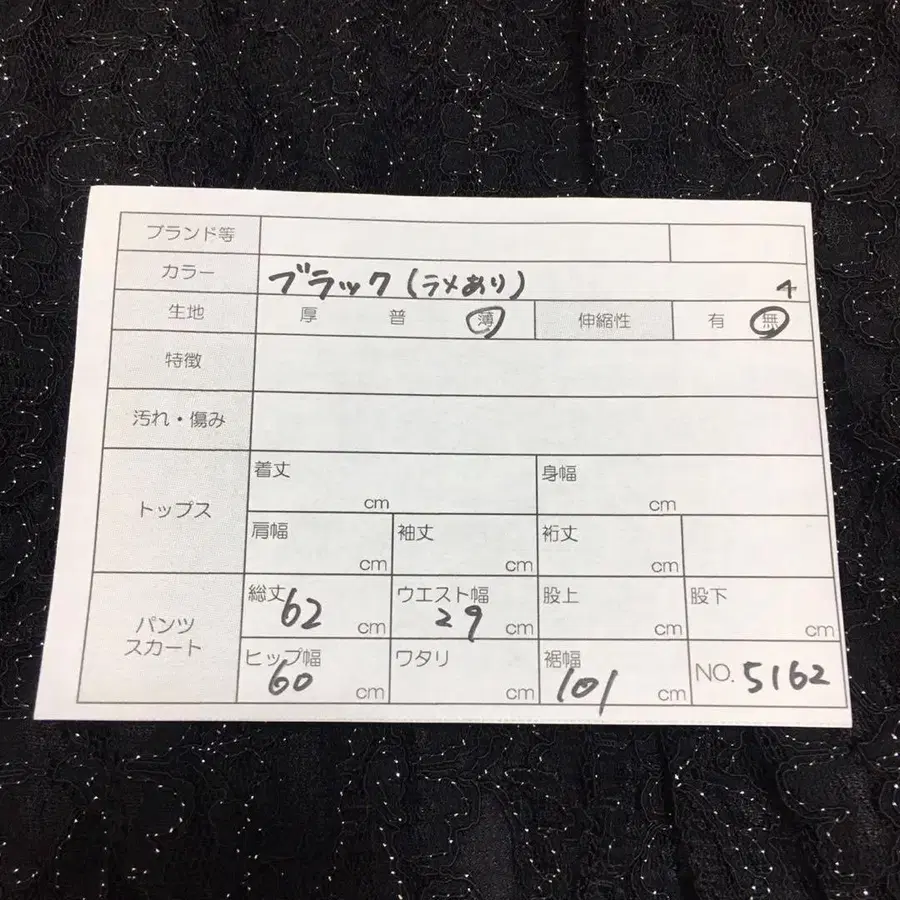 ブランド等
カラー ブラック(ラメあり) 4
生地 厚 普 薄 伸縮性 有 無
特徴
汚れ・傷み
トップス
着丈 cm 身幅 cm
肩幅 cm 袖丈 cm 裄丈 cm
パンツ
スカート
総丈 62 cm ウエスト幅 29 cm 股上 cm 股下 cm
ヒップ幅 60 cm ワタリ cm 裾幅 101 cm NO. 5162